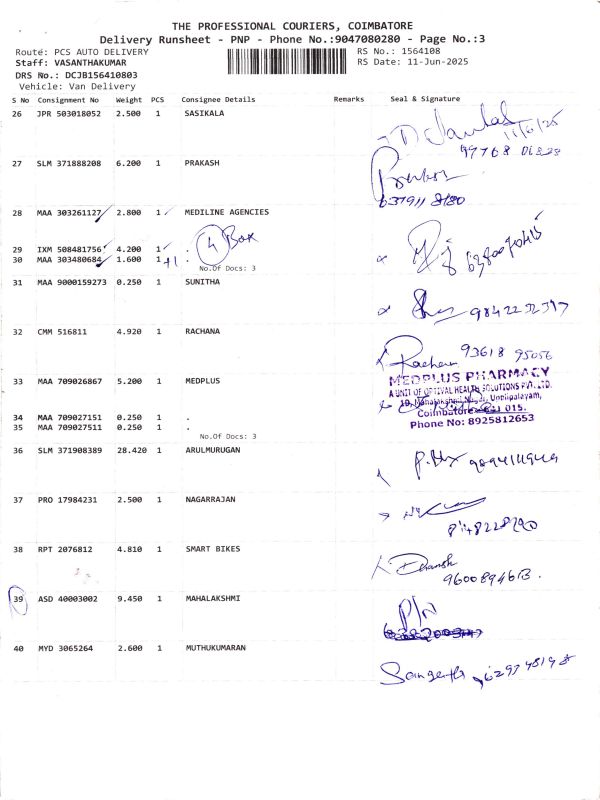 THE PROFESSIONAL COURIERS, COIMBATORE
Delivery Runsheet - PNP - Phone No.:9047080280 - Page No.:3
Route: PCS AUTO DELIVERY RS No.: 1564108
Staff: VASANTHAKUMAR RS Date: 11-Jun-2025
DRS No.: DCJB156410803
Vehicle: Van Delivery
S No Consignment No Weight PCS Consignee Details Remarks Seal & Signature
26 JPR 503018052 2.500 1 SASIKALA
11/6/25
27 SLM 371888208 6.200 1 PRAKASH
28 MAA 303261127 2.800 1 MEDILINE AGENCIES
4 Box
29 IXM 508481756 4.200 1 .
30 MAA 303480684 1.600 1 +1 .
No.Of Docs: 3
31 MAA 9000159273 0.250 1 SUNITHA
9842232397
32 CMM 516811 4.920 1 RACHANA
93618 95056
33 MAA 709026867 5.200 1 MEDPLUS
MEDPLUS PHARMACY
A UNIT OF OPTIVAL HEALTH SOLUTIONS PVT. LTD.
Coimbatore - 641 015.
Phone No: 8925812653
34 MAA 709027151 0.250 1 .
35 MAA 709027511 0.250 1 .
No.Of Docs: 3
36 SLM 371908389 28.420 1 ARULMURUGAN
37 PRO 17984231 2.500 1 NAGARRAJAN
38 RPT 2076812 4.810 1 SMART BIKES
39 ASD 40003002 9.450 1 MAHALAKSHMI
P/N
40 MYD 3065264 2.600 1 MUTHUKUMARAN